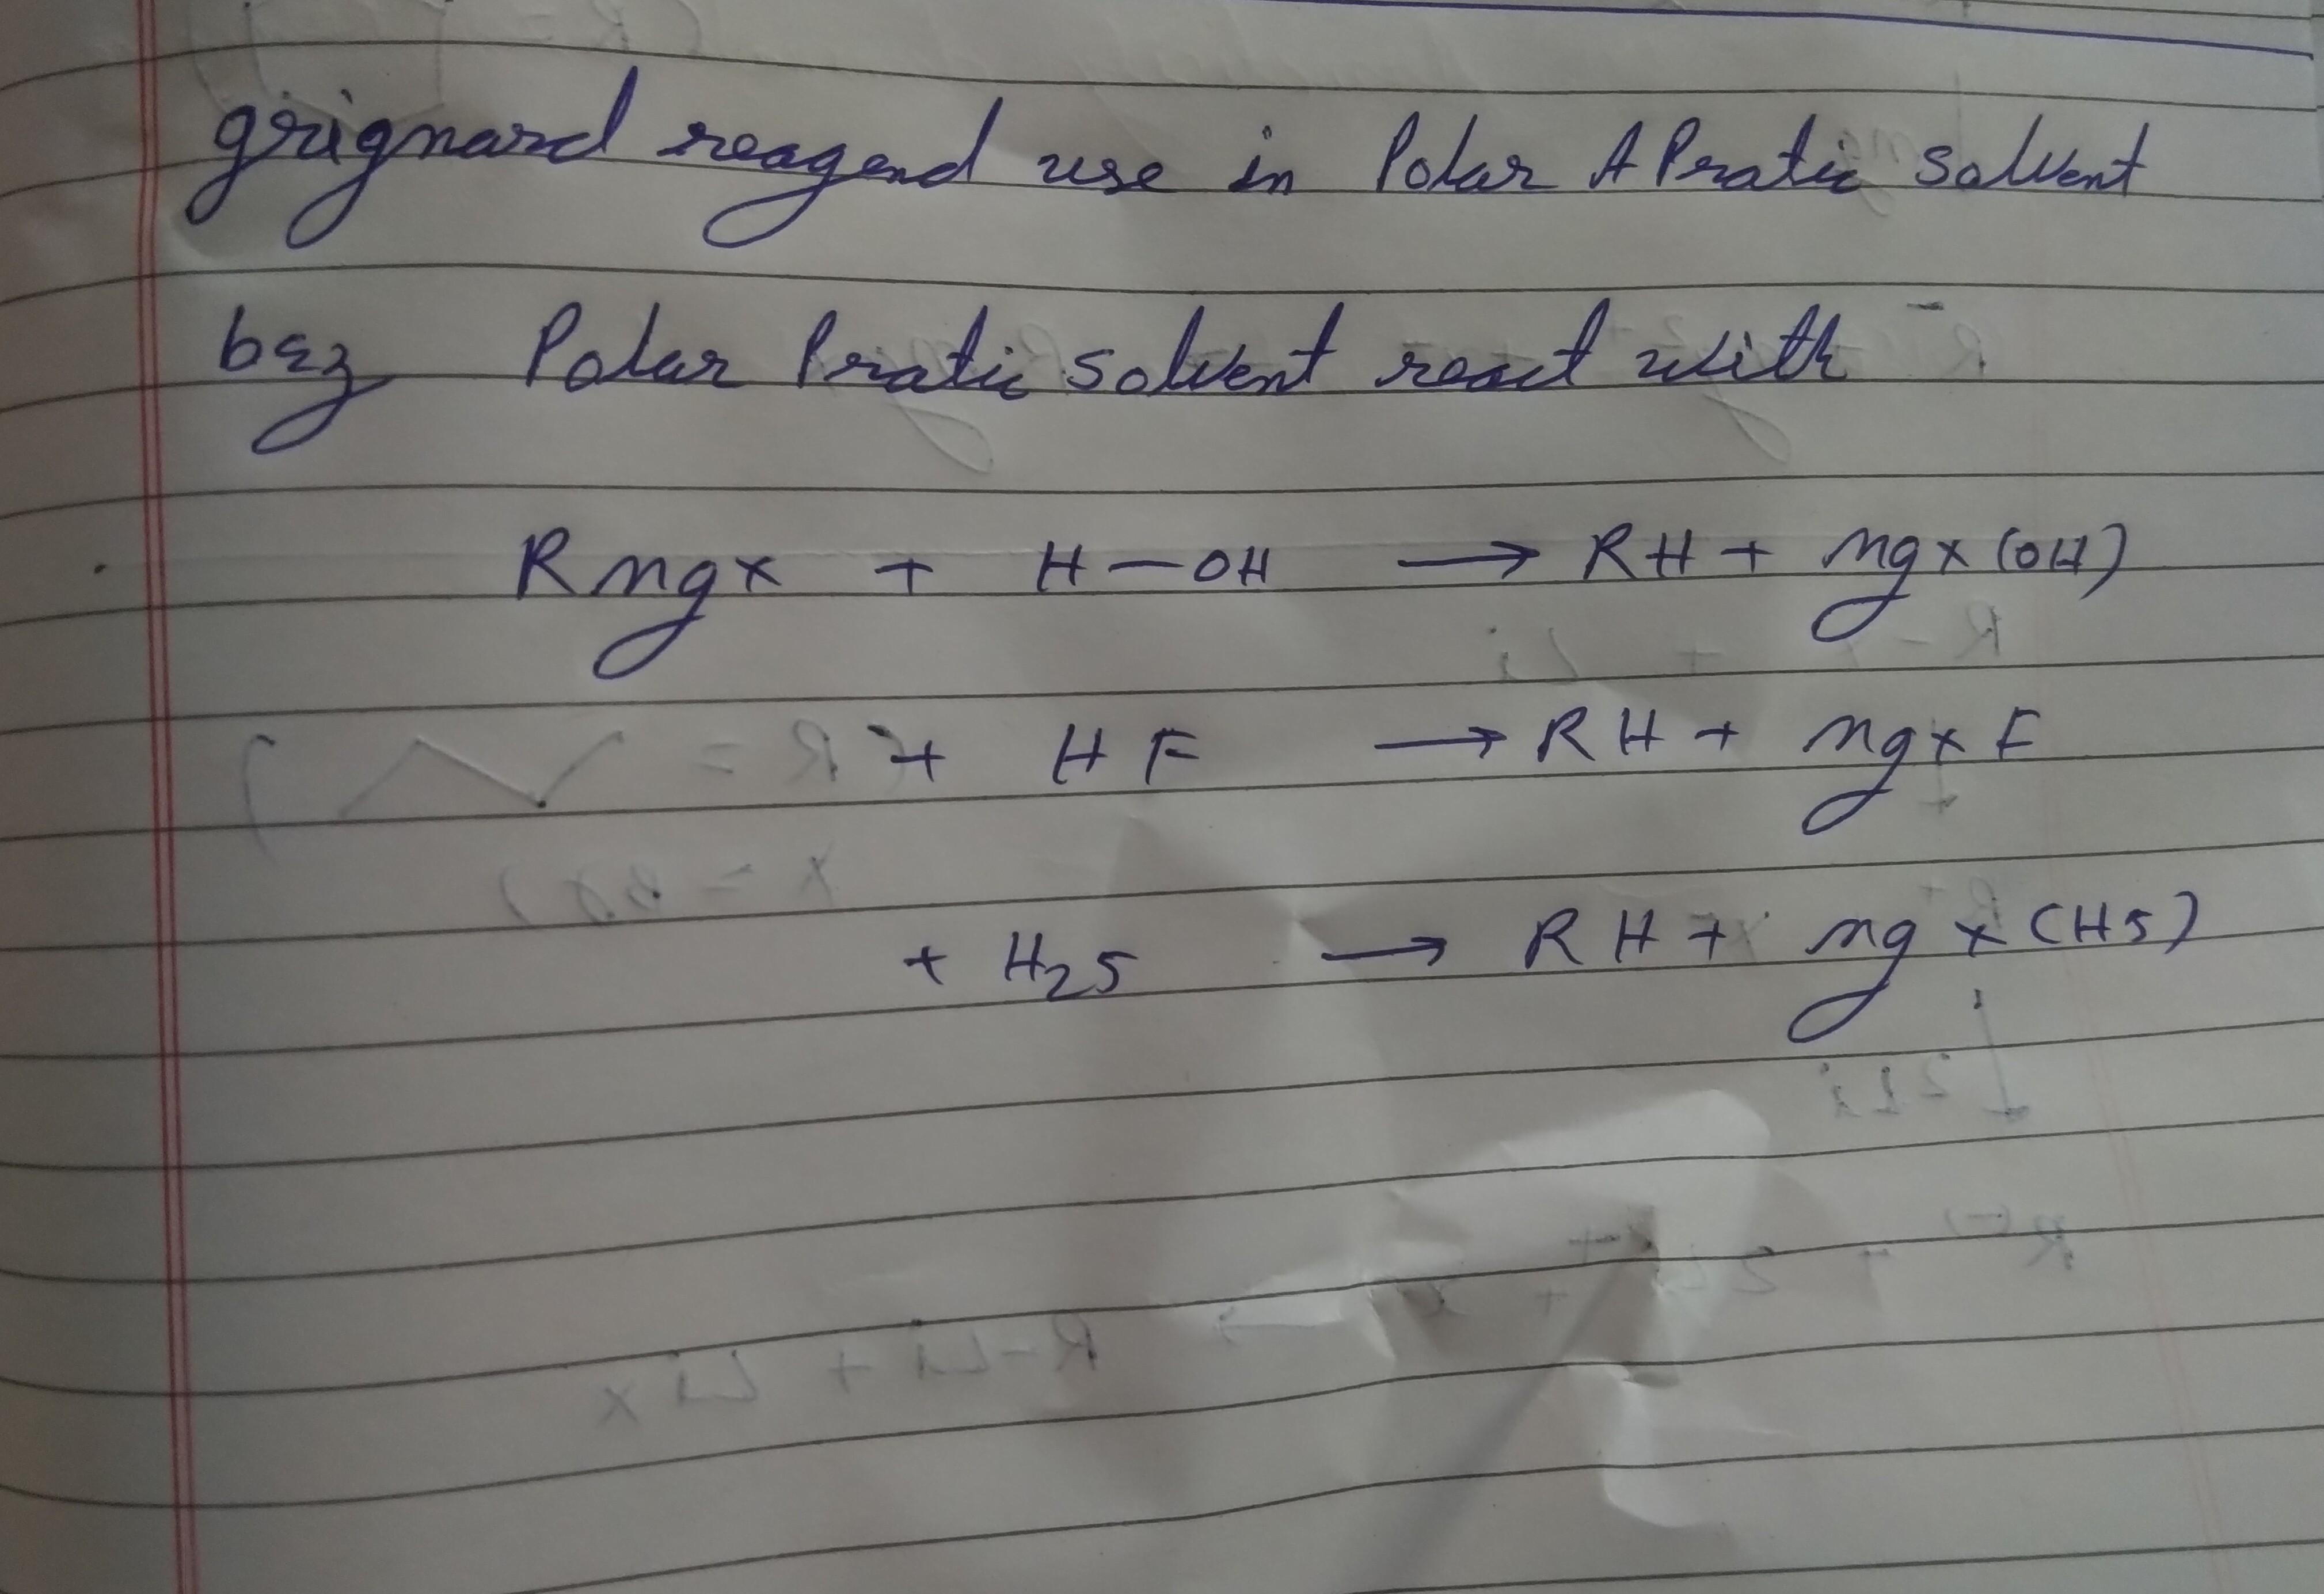 grignard reagend use in Polar A Pratic Solvent
bcz Polar Pratic solvent react with -
R mgx + H-OH → RH + mgx (OH)
+ HF → RH + mgxF
+ H2S → RH + mgx (HS)